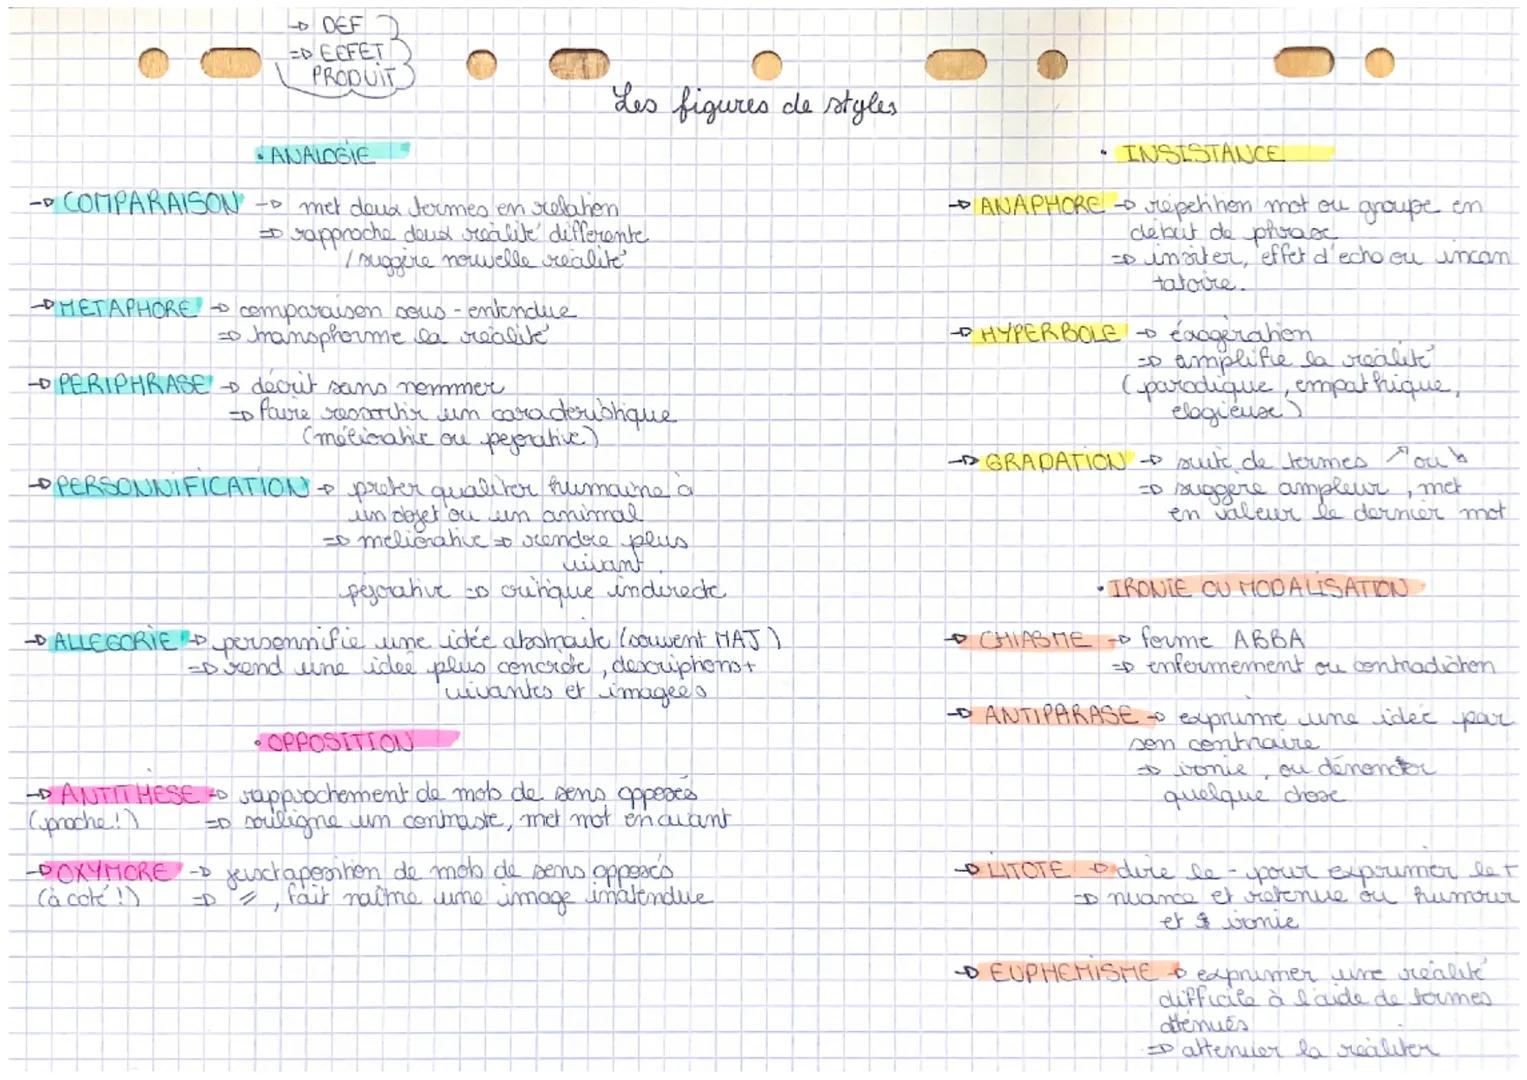 → DEF
⇒ EFFET
PRODUIT
Les figures de styles
• ANALOGIE
→ COMPARAISON → met deux termes en relation
⇒ rapproche deux réalité differente
/ suggère nouvelle réalité
→ METAPHORE → comparaison sous-entendue
⇒ transphorme la réalité
→ PERIPHRASE → décrit sans nommer
⇒ faire ressortir um caractéristique
(méliorative ou pejorative)
→ PERSONNIFICATION → preter qualiter humaine à
un objet ou un animal
⇒ meliorative ⇒ rendre plus
vivant.
péjorative ⇒ critique indirecte
→ ALLEGORIE → personnifie une idée abstraite (souvent MAJ)
⇒ rend une idée plus concrète, descriptions +
vivantes et imagées
• OPPOSITION
→ ANTITHESE → rapprochement de mots de sens opposés
(proche!) ⇒ souligne um contraste, met mot en avant
→ OXYMORE → juxtaposition de mots de sens opposés
(à coté!) ⇒ //=, fait naître une image inatendue
• INSISTANCE
→ ANAPHORE → répetition mot ou groupe en
début de phrase
⇒ insiter, effet d'echo ou incan
tatoire.
→ HYPERBOLE → éxagération
⇒ amplifie la réalité
(parodique, empathique,
elogieuse)
→ GRADATION → suite de termes ↗ ou ↘
⇒ suggère ampleur, met
en valeur le dernier mot
• IRONIE OU MODALISATION
→ CHIASME → forme ABBA
⇒ enfermement ou contradiction
→ ANTIPARASE → exprime une idée par
son contraire
⇒ ironie, ou dénoncer
quelque chose
→ LITOTE → dire le - pour exprimer le +
⇒ nuance et retenue ou humour
et ironie
→ EUPHEMISME → exprimer une réalité
difficile à l'aide de termes
atténués
⇒ attenuer la réaliter